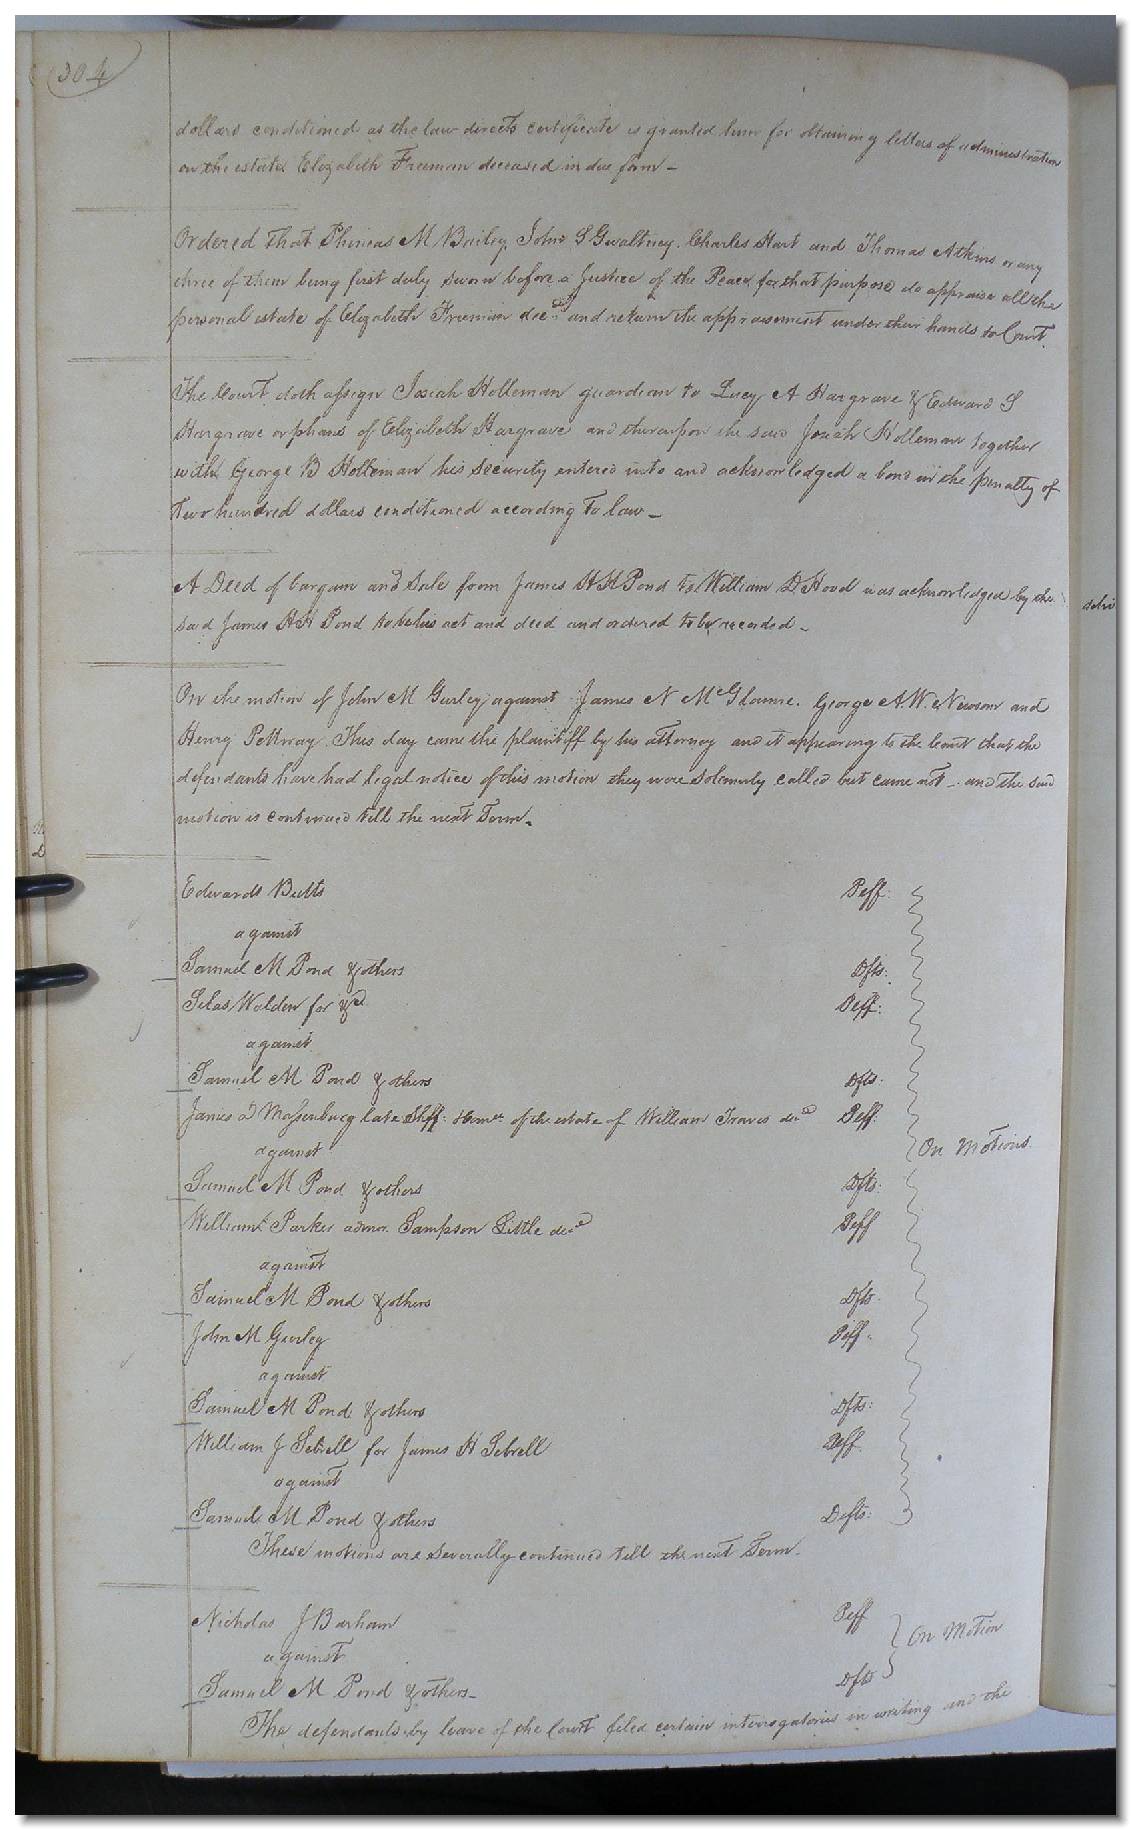 304
dollars conditioned as the law directs certificate is granted him for obtaining letters of administration
on the estate Elizabeth Freeman deceased in due form —
Ordered that Phineas M Bailey, John S Gwaltney, Charles Hart and Thomas Atkins or any
three of them being first duly sworn before a Justice of the Peace for that purpose do appraise all the
personal estate of Elizabeth Freeman decd and return the appraisement under their hands to Court.
The Court doth assign Josiah Holleman guardian to Lucy A Hargrave & Edward S
Hargrave orphans of Elizabeth Hargrave and thereupon the said Josiah Holleman together
with George B Holleman his security entered into and acknowledged a bond in the penalty of
Two hundred dollars conditioned according to law —
A Deed of bargain and Sale from James H H Pond to William D Hood was acknowledged by the
said James H H Pond to be his act and deed and ordered to be recorded —
On the motion of John M Gurley against James N McGlamre, George A.W. Newsom and
Henry Pettway. This day came the plaintiff by his attorney and it appearing to the Court that the
defendants have had legal notice of this motion they were solemnly called but came not — and the said
motion is continued till the next Term.
Edwards Butts Peff:
against
Samuel M Pond & others Dfts:
Silas Walden for &c Peff:
against
Samuel M Pond & others Dfts:
James D Massenburg late Shff: of the estate of William Travis decd Peff:
against
Samuel M Pond & others Dfts:
William Parker admor. Sampson Little decd Peff
against
Samuel M Pond & others Dfts:
John M Gurley Peff.
against
Samuel M Pond & others Dfts:
William J Sebrell for James H Sebrell Peff.
against
Samuel M Pond & others Defts:
On Motions.
These motions are severally continued till the next Term.
Nicholas J Barham Peff
against On Motion
Samuel M Pond & others — Dfts
The defendants by leave of the Court filed certain interrogatories in writing and the